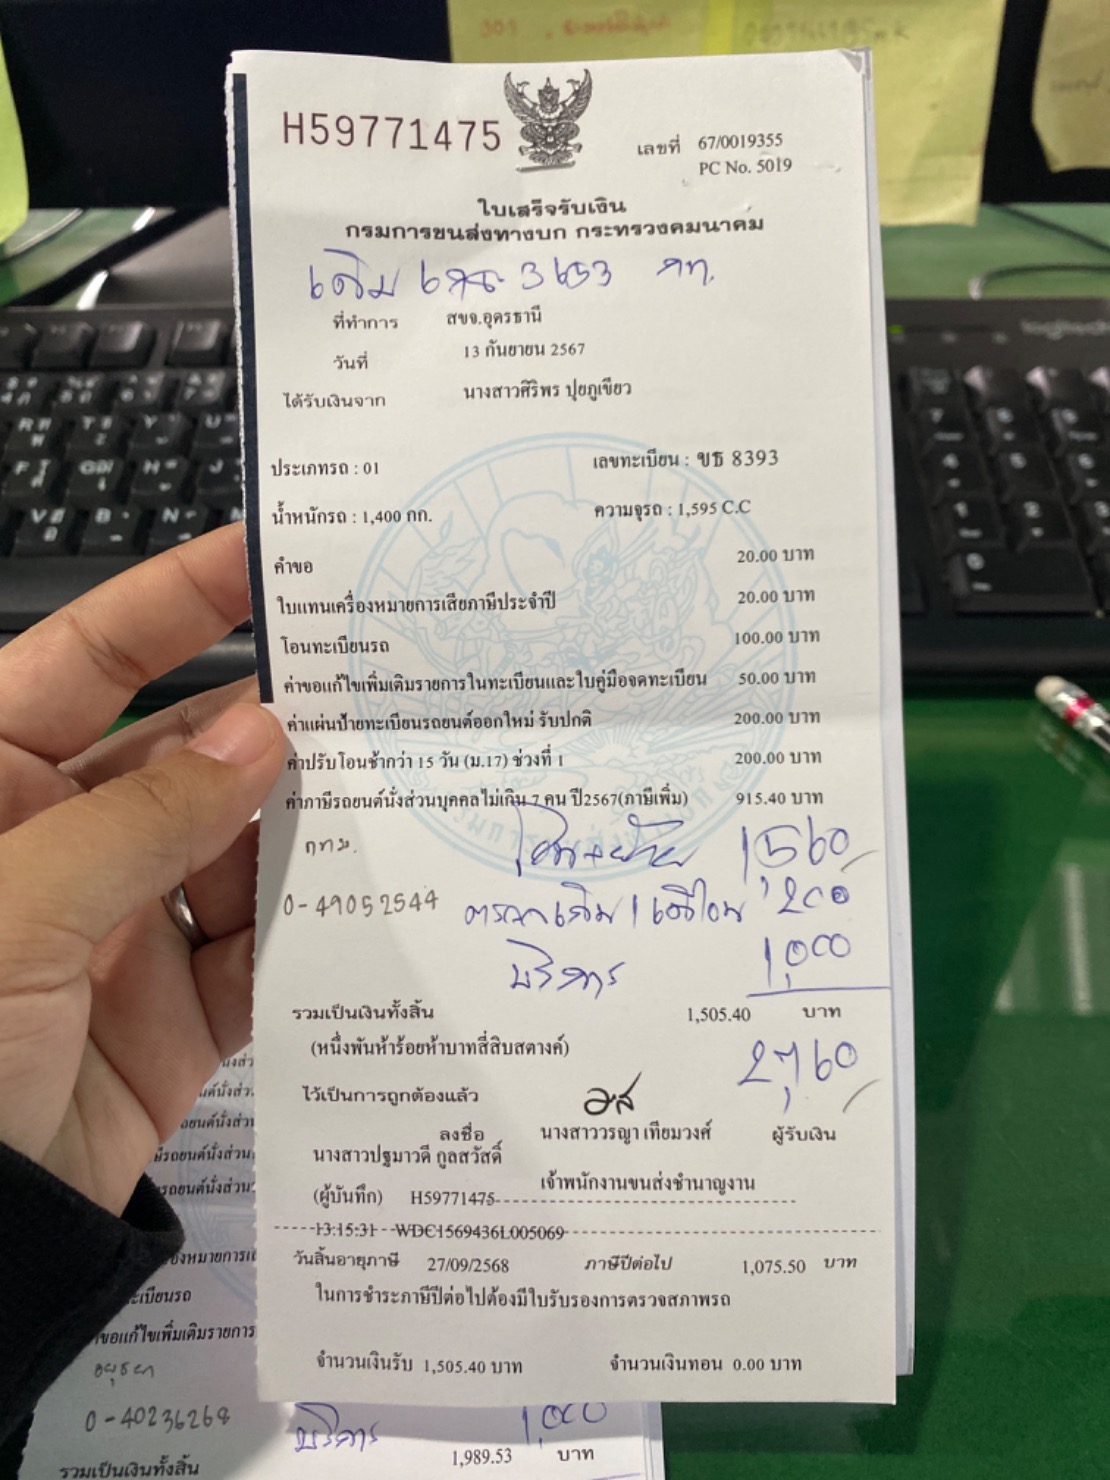 H59771475
เลขที่ 67/0019355
PC No. 5019
ใบเสร็จรับเงิน
กรมการขนส่งทางบก กระทรวงคมนาคม
เดิม
กท.
ที่ทำการ สขจ.อุดรธานี
วันที่ 13 กันยายน 2567
ได้รับเงินจาก นางสาวศิริพร ปุยภูเขียว
ประเภทรถ : 01 เลขทะเบียน : ขธ 8393
น้ำหนักรถ : 1,400 กก. ความจุรถ : 1,595 C.C
คำขอ 20.00 บาท
ใบแทนเครื่องหมายการเสียภาษีประจำปี 20.00 บาท
โอนทะเบียนรถ 100.00 บาท
ค่าขอแก้ไขเพิ่มเติมรายการในทะเบียนและใบคู่มือจดทะเบียน 50.00 บาท
ค่าแผ่นป้ายทะเบียนรถยนต์ออกใหม่ รับปกติ 200.00 บาท
ค่าปรับโอนช้ากว่า 15 วัน (ม.17) ช่วงที่ 1 200.00 บาท
ค่าภาษีรถยนต์นั่งส่วนบุคคลไม่เกิน 7 คน ปี2567(ภาษีเพิ่ม) 915.40 บาท
กทม. โอน+ย้าย 1,560
0-49052544 ตรวจเดิม 200
บริการ 1,000
รวมเป็นเงินทั้งสิ้น 1,505.40 บาท
(หนึ่งพันห้าร้อยห้าบาทสี่สิบสตางค์) 2,760
ไว้เป็นการถูกต้องแล้ว
ลงชื่อ นางสาววรญา เทียมวงศ์ ผู้รับเงิน
นางสาวปฐมาวดี กูลสวัสดิ์
เจ้าพนักงานขนส่งชำนาญงาน
(ผู้บันทึก) H59771475
13:15:31 WDC1569436L005069
วันสิ้นอายุภาษี 27/09/2568 ภาษีปีต่อไป 1,075.50 บาท
ในการชำระภาษีปีต่อไปต้องมีใบรับรองการตรวจสภาพรถ
จำนวนเงินรับ 1,505.40 บาท จำนวนเงินทอน 0.00 บาท
อยุธยา
0-40236268 บริการ 1,000
รวมเป็นเงินทั้งสิ้น 1,989.53 บาท